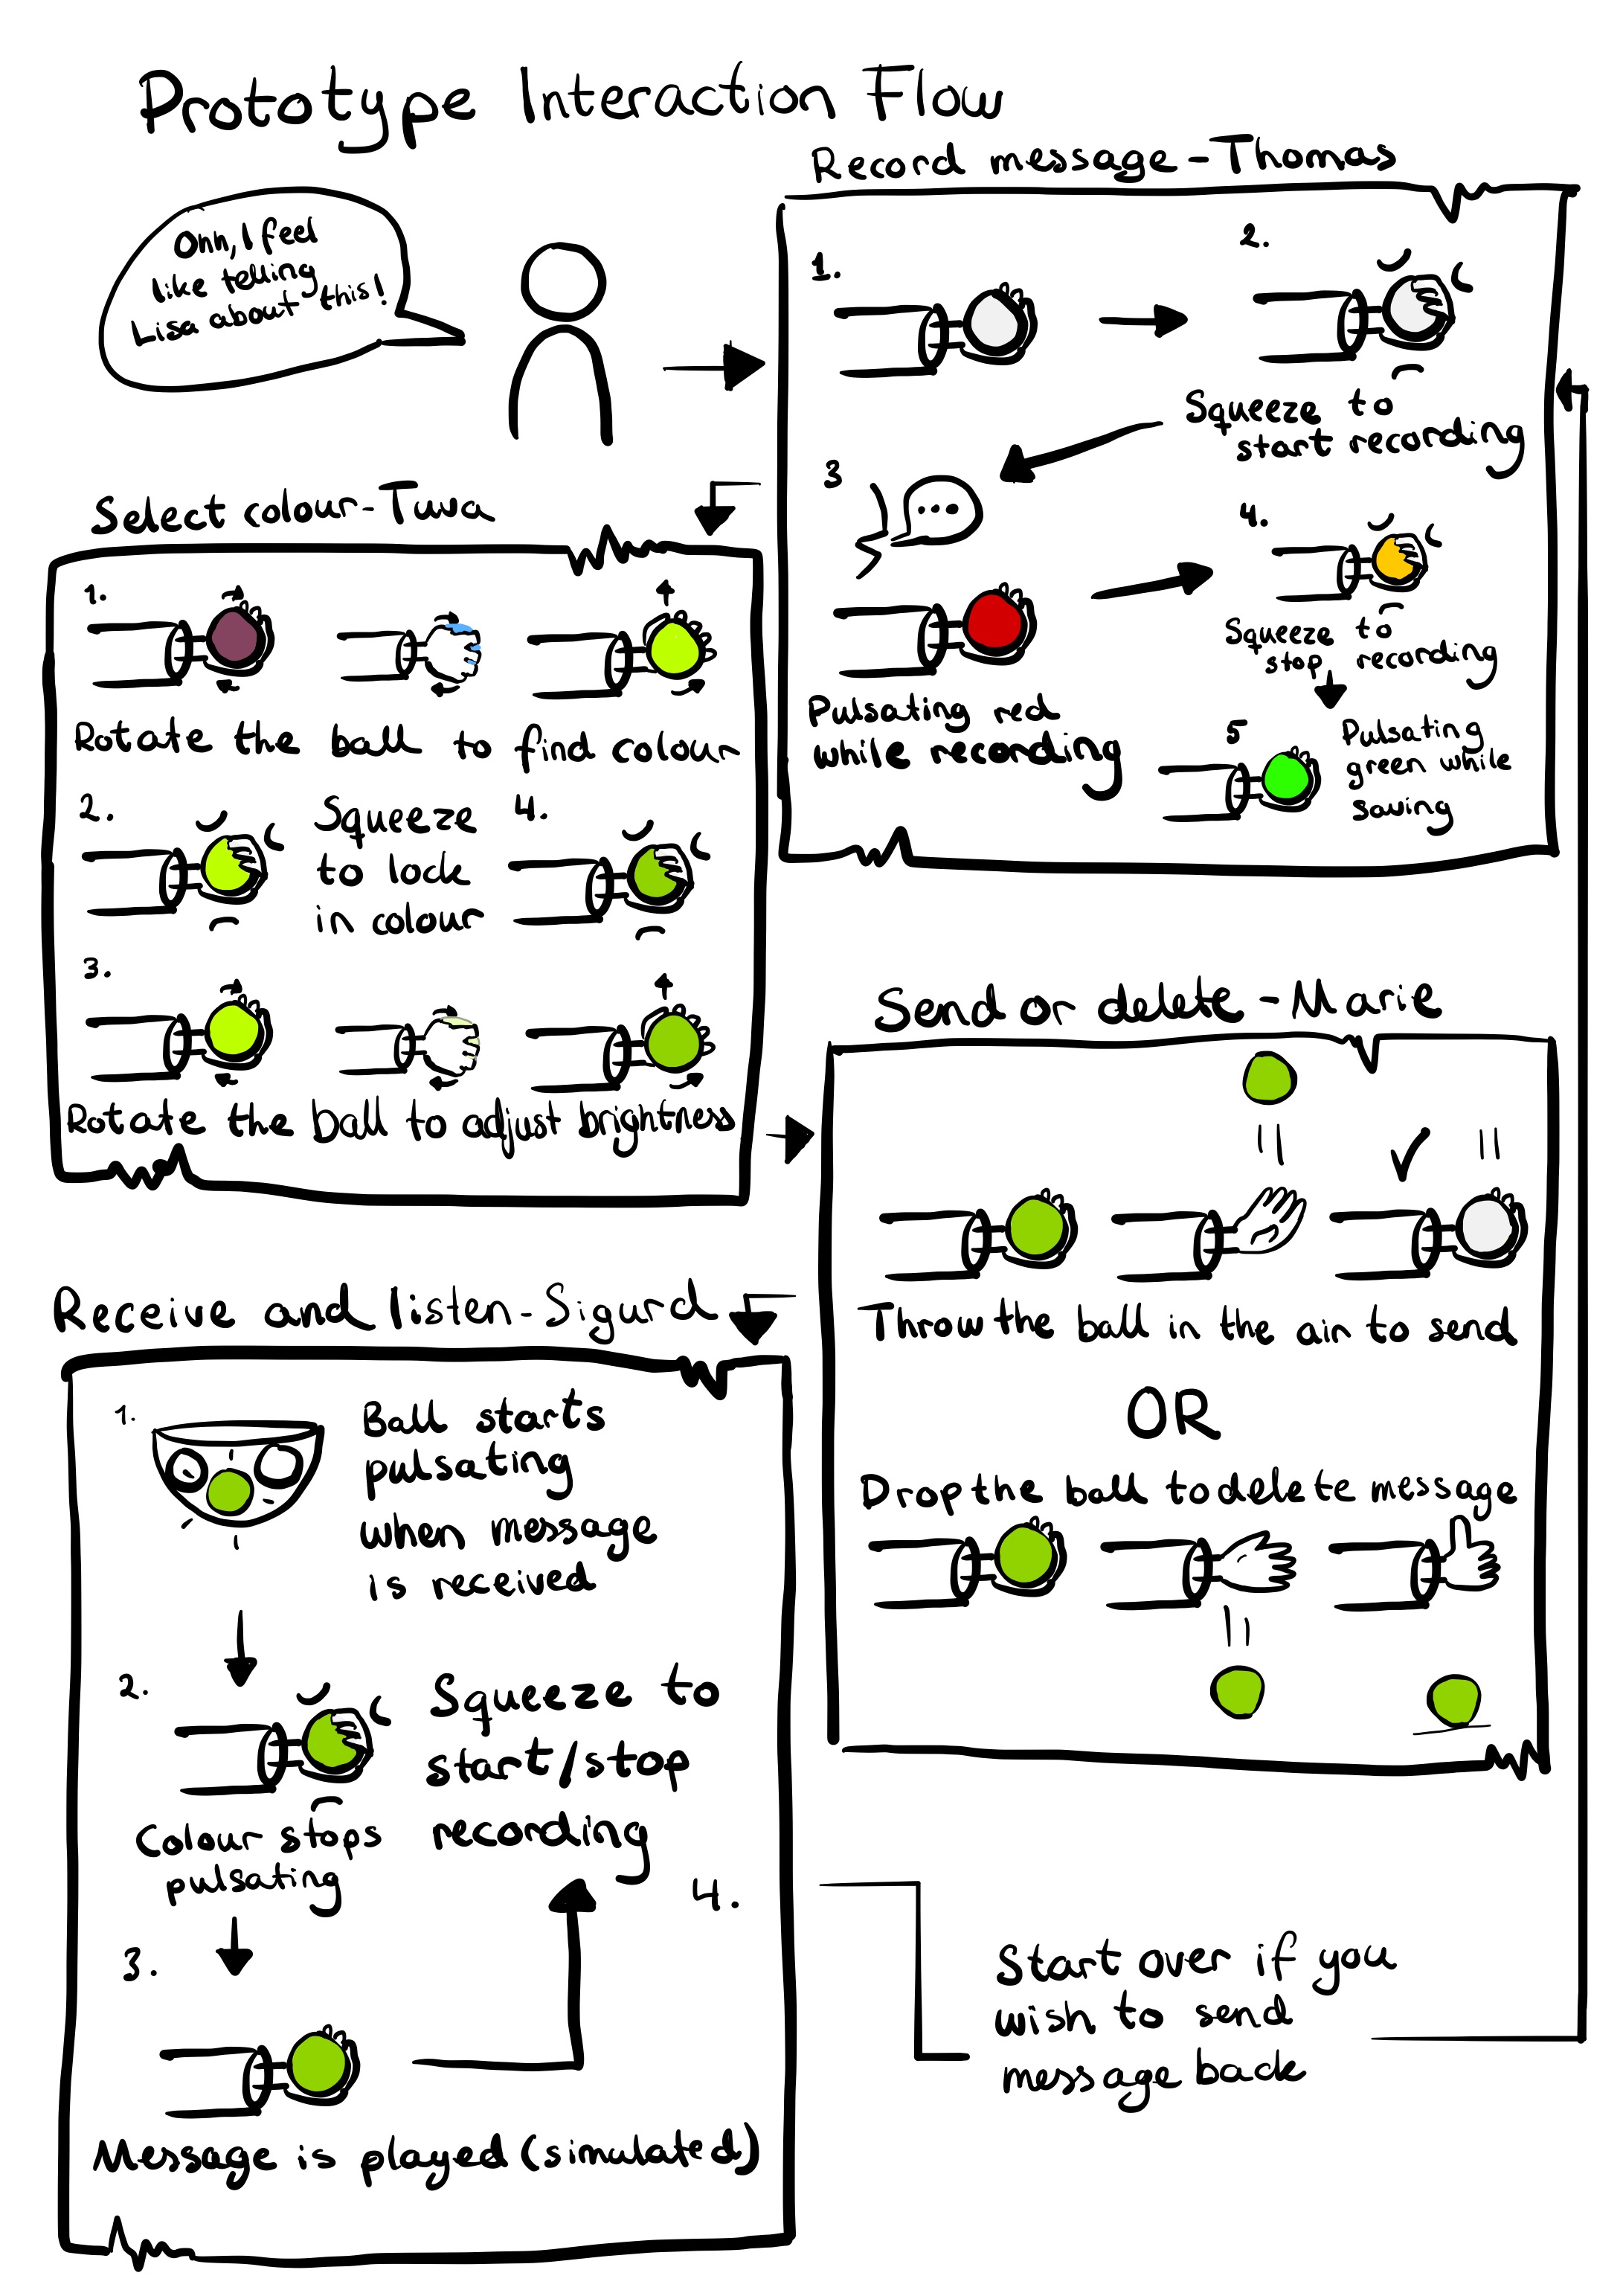 Prototype Interaction Flow
Ohh, I feel
like telling
Lisa about this!
Record message - Thomas
1.
2.
Squeeze to
start recording
3
...
Pulsating red
while recording
4.
Squeeze to
stop recording
5
Pulsating
green while
saving
Select colour - Tuva
1.
Rotate the ball to find colour
2.
Squeeze
to lock
in colour
4.
3.
Rotate the ball to adjust brightness
Send or delete - Marie
Throw the ball in the air to send
OR
Drop the ball to delete message
Receive and listen - Sigurd
1.
Ball starts
pulsating
when message
is received
2.
Colour stops
pulsating
Squeeze to
start/stop
recording
4.
3.
Message is played (simulated)
Start over if you
wish to send
message back